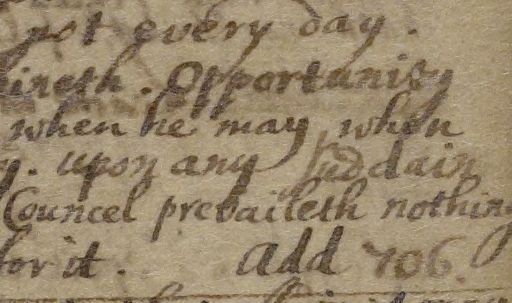 not every day.
ireth. Opportunity
when he may, when
y. upon any suddain
Councel prevaileth nothing
for it. add 706.